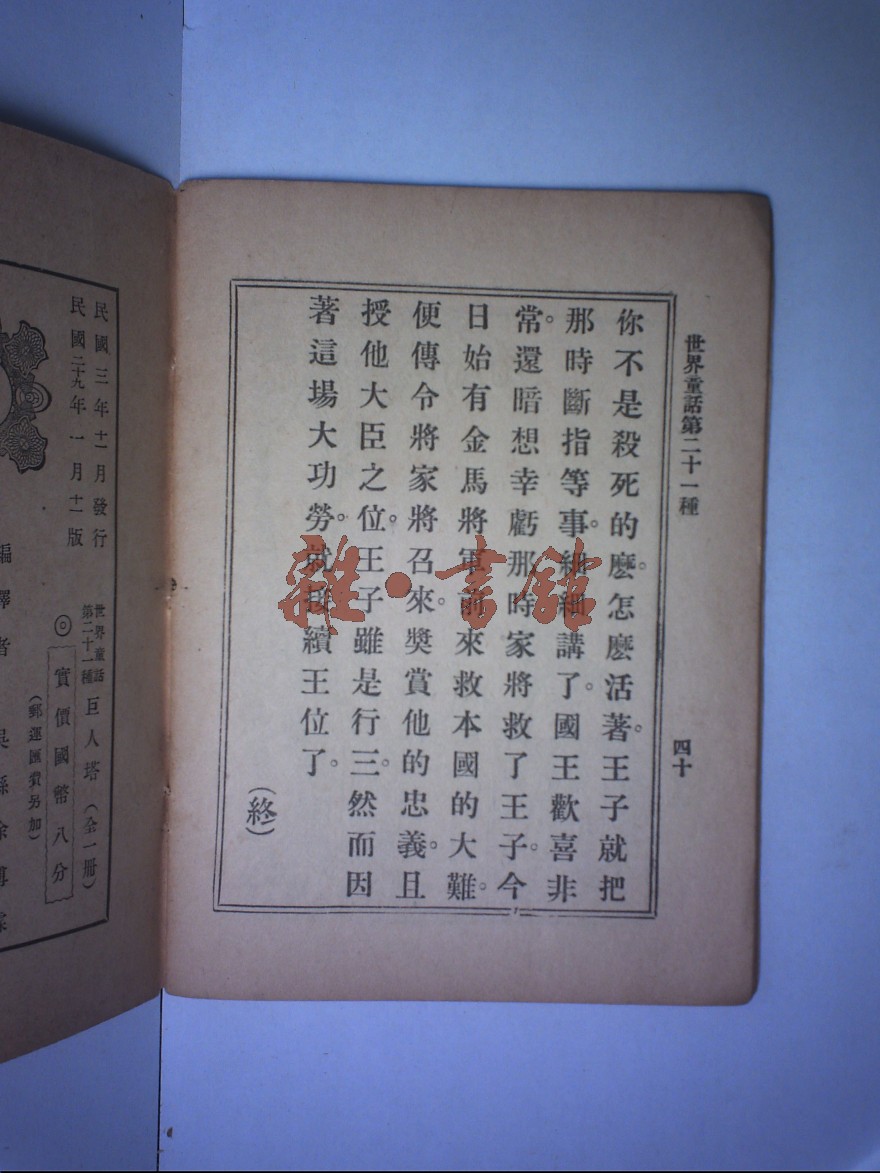 世界童話第二十一種
四十
你不是殺死的麽。怎麽活著。王子就把
那時斷指等事。細細講了。國王歡喜非
常。還暗想幸虧那時家將救了王子。今
日始有金馬將軍前來救本國的大難。
便傳令將家將召來。獎賞他的忠義。且
授他大臣之位。王子雖是行三。然而因
著這場大功勞。就接續王位了。
(終)
民國三年十一月發行
民國二十九年一月十一版
世界童話第二十一種
巨人塔(全一冊)
◎實價國幣八分
(郵運匯費另加)
編譯者
雜·書館